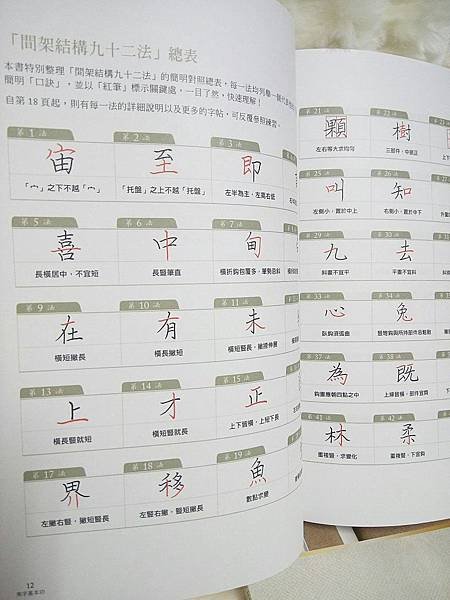 「間架結構九十二法」總表
本書特別整理「間架結構九十二法」的簡明對照總表，每一法均列舉一個代表
簡明「口訣」，並以「紅筆」標示關鍵處，一目了然，快速理解！
自第 18 頁起，則有每一法的詳細說明以及更多的字帖，可反覆參照練習。
第 1 法
第 2 法
第 3 法
宙
至
即
「宀」之下不越「宀」
「托盤」之上不越「托盤」
左半為主，左高右低
第 5 法
第 6 法
第 7 法
喜
中
甸
長橫居中，不宜短
長豎筆直
橫折鈎包覆多，筆勢宜斜
第 9 法
第 10 法
第 11 法
在
有
未
橫短撇長
橫長撇短
橫短豎長，撇捺伸展
第 13 法
第 14 法
第 15 法
上
才
正
橫長豎就短
橫短豎就長
上下皆橫，上短下長
第 17 法
第 18 法
第 19 法
界
移
魚
左撇右豎，撇短豎長
左豎右撇，豎短撇長
數點求變
12
寫字基本功
第 21 法
第 22 法
顆
樹
左右等大求均勻
三部件，中就正
第 25 法
第 26 法
叫
知
左側小，置於中上
右側小，置於中下
第 29 法
第 30 法
九
去
斜畫不宜平
平畫不宜斜
第 33 法
第 34 法
心
兔
臥鈎須弧曲
第 37 法
第 38 法
為
既
鈎畫應朝四點之中
第 41 法
第 42 法
林
柔
重複豎，求變化
重複豎，下宜鈎